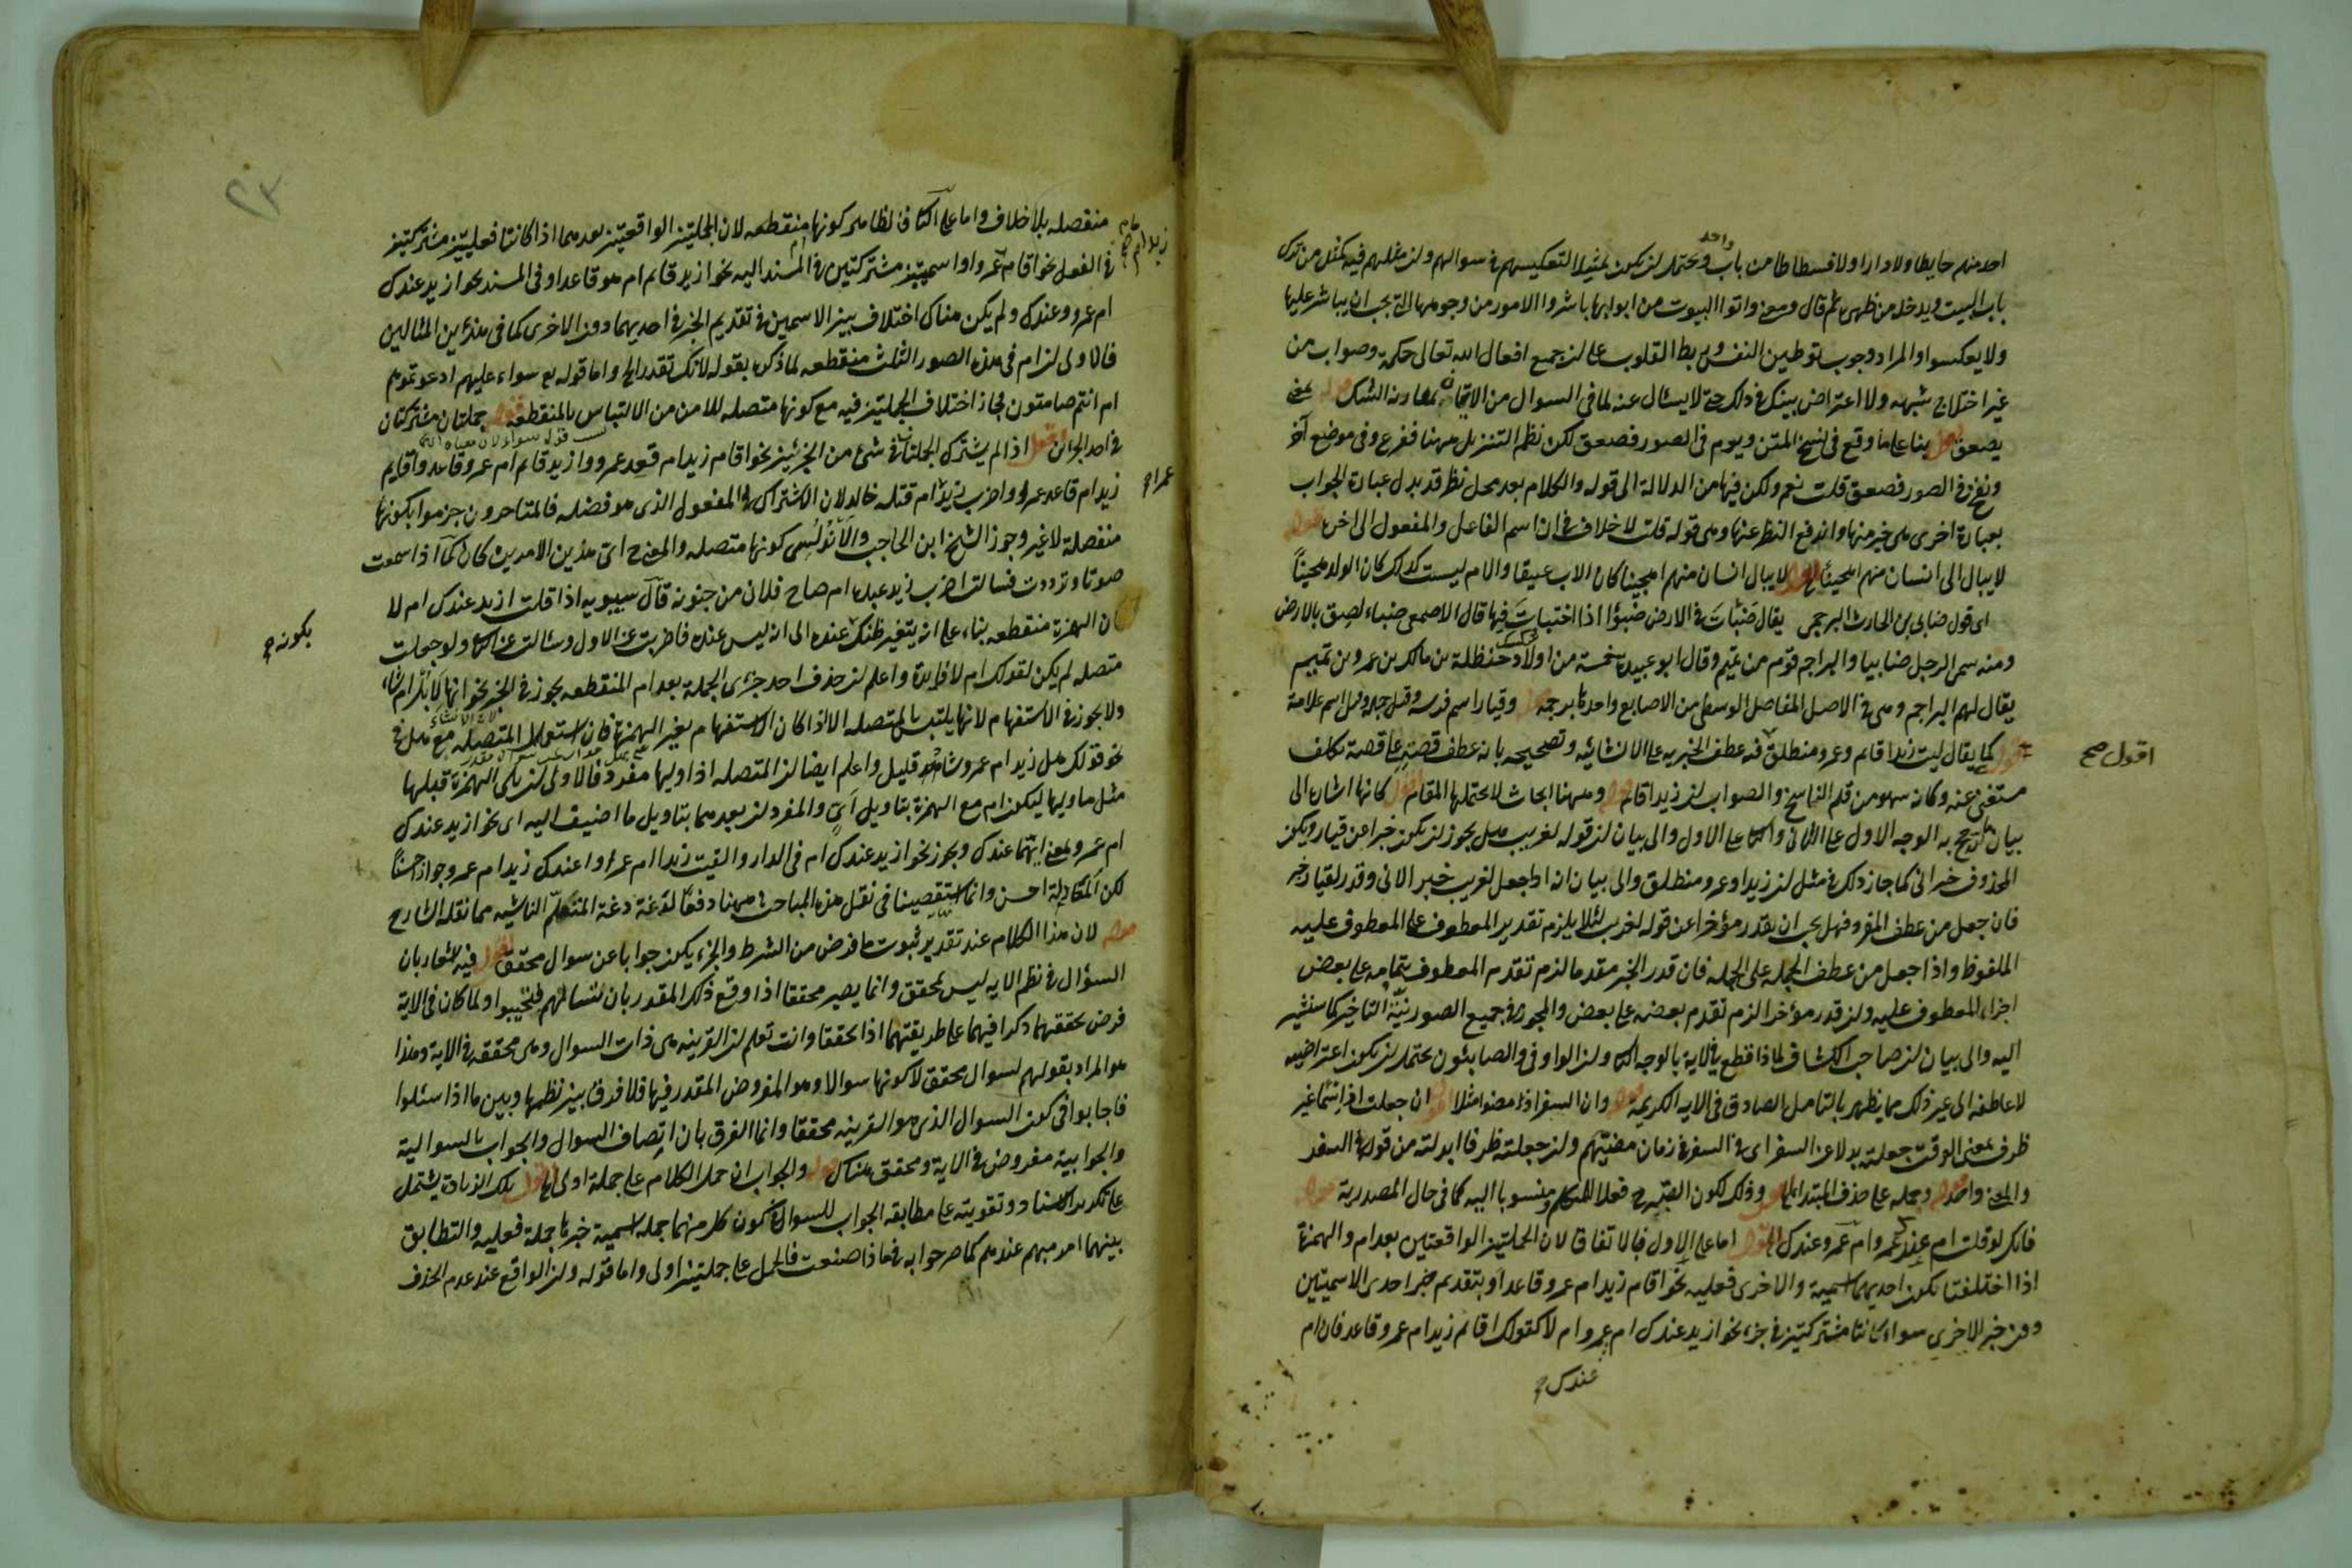 احد منهم حايطا ولا دارا ولا فسطاطا من باب واحد ويحتمل ان يكون تمثيلا لتعكيسهم في سوالهم وان مثلهم فيه كمثل من ترك
باب البيت ويدخله من ظهره ثم قال ومعنى واتوا البيوت من ابوابها باشروا الامور من وجوهها التي يجب ان يباشر عليها
ولا يعكسوا والمراد وجوب توطين النفس وربط القلوب على ان جميع افعال الله تعالى حكمة وصواب من
غير اختلاج شبهه ولا اعتراض بينك في ذلك حتى لا يسئال عنه لما في السوال من الاتهام بمقارنة الشك قوله
يصعق اقول بنا على ما وقع في نسخ المتن ويوم في الصور فصعق لكن نظم التنزيل ههنا ففزع وفي موضع آخر
ونفخ في الصور فصعق قلت نعم ولكن فيها من الدلالة الى قوله والكلام بعد محل نظر قد بدل عبارة الجواب
بعبارة اخرى هي خير منها واندفع النظر عنها وهي قوله قلت لا خلاف في ان اسم الفاعل والمفعول الى اخره قوله
لا يبال الى انسان منهم لا يبال انسان منهم اهجينا كان الاب عتيقا والام ليست كذلك كان الولد هجيناً
اى قول ضابى بن الحارث البرجمى يقال ضَبَأتَ في الارض ضبوأ اذا اختبأتَ فيها قال الاصمعى ضبأ لصق بالارض
ومنه سمى الرجل ضابيا والبراجم قوم من تميم وقال ابو عبيدة خمسة من اولاد حنظلة بن مالك بن عمرو بن تميم
يقال لهم البراجم وهي في الاصل المفاصل الوسطى من الاصابع واحدتها برجمه قوله وقيار اسم فرسه وقيل جمله وقيل اسم غلامه
قوله كما يقال ليت زيدا قائم وعمرو منطلق فيه عطف الخبريه على الانشائيه وتصحيحه بانه عطف قصة على قصة تكلف
اقول صح
مستغنى عنه وكانه سهو من قلم الناسخ والصواب ان زيدا قائم قوله وههنا ابحاث لا يحتملها المقام اقول كانها اشارة الى
بيان ترجيح به الوجه الاول على الثاني والثاني على الاول والى بيان ان قوله لغريب هل يجوز ان يكون خبرا عن قيار ويكون
المحذوف خبر ان كما جاز ذلك في مثل ان زيدا وعمرو منطلق والى بيان انه اذا جعل لغريب خبر الان وقدر لقيار خبر
فان جعل من عطف المفرد فهل يجب ان يقدر مؤخرا عن قوله لغريب لئلا يلزم تقدير المعطوف على المعطوف عليه
الملفوظ واذا جعل من عطف الجمله على الجمله فان قدر الخبر مقدما لزم تقدم المعطوف بتمامه على بعض
اجزاء المعطوف عليه وان قدر مؤخرا لزم تقدم بعضه على بعض والمجوز في جميع الصور نيّة التاخير كما سنشير
اليه والى بيان ان صاحب الكشاف لماذا قطع في الاية بالوجه الثاني وان الواو في والصابئون يحتمل ان يكون اعتراضيه
لا عاطفه الى غير ذلك مما يظهر بالتامل الصادق في الايه الكريمه قوله وان السفر اذ مضوا مثلا ان جعلت اذ اسمًا غير
ظرف بمعنى الوقت جعلته بدلا عن السفر اى في السفر في زمان مضيّهم وان جعلته ظرفا ابدلته من قوله في السفر
والمعنى واحد قوله وحمله على حذف المبتدا وذلك لكون الصبر ح فعلا للمتكلم ومنسوبا اليه كما في حال المصدرية قوله
فانك لو قلت ام عندك عمرو ام عمرو عندك اقول اما على الاول فبالاتفاق لان الجملتين الواقعتين بعد ام والهمزة
اذا اختلفتا بكون احديهما اسمية والاخرى فعليه نحو اقام زيد ام عمرو قاعد او بتقديم خبر احدى الاسميتين
دون خبر الاخرى سواء كانتا مشتركتين في جزء نحو ازيد عندك ام عمرو ام لا كقولك اقائم زيد ام عمرو قاعد فان ام
عندك
٢٣
منفصله بلا خلاف واما على الثاني فالظاهر كونها منقطعه لان الجملتين الواقعتين بعدهما اذا كانتا فعليتين مشتركتين
في الفعل نحو اقام عمرو او اسميتين مشتركتين في المسند اليه نحو ازيد قائم ام هو قاعد او في المسند نحو ازيد عندك
ام عمرو عندك ولم يكن هناك اختلاف بين الاسمين في تقديم الخبر في احديهما دون الاخرى كما في هذين المثالين
فالاولى ان ام في هذه الصور الثلث منقطعه لما ذكره بقوله لانك تقدر الخ واما قوله تع سواء عليهم ادعوتموهم
ام انتم صامتون فجاز اختلاف الجملتين فيه مع كونها متصله للامن من الالتباس بالمنقطعه قوله جملتان مشتركتان
في احد الجزئين اقول اذا لم يشترك الجملتان في شئ من الجزئين نحو اقام زيد ام قعد عمرو وازيد قائم ام عمرو قاعد واقايم
زيد ام قاعد عمرو واضرب زيد ام قتله خالد لان الاشتراك في المفعول الذي هو فضله فالمتاخرون جزموا بكونها
عمرا
منفصلة لا غير وجوز الشيخ ابن الحاجب والاَنْدُلُسى كونها متصله والمعنى ح اى هذين الامرين كان كما اذا سمعت
صوتا وترددت فسالت اضرب زيد عبده ام صاح فلان من جنونه قال سيبويه اذا قلت ازيد عندك ام لا
ن الهمزة منقطعه بناء على انه يتغير ظنك عنده الى انه ليس عنده فاضربت عن الاول وسالت عن الثاني ولو جعلت
بكونه
متصله لم يكن لقولك ام لا فايدة واعلم ان حذف احد جزءى الجملة بعد ام المنقطعه يجوز في الخبر نحو انها لابل ام شاء
ولا يجوز في الاستفهام لانها يلتبس بالمتصله الا اذا كان الاستفهام بغير الهمزة فان استعمال المتصله مع هل في
نحو قولك هل زيد ام عمرو شاذ قليل واعلم ايضا ان المتصله اذا وليها مفرد فالاولى ان يلى الهمزة قبلها
مثل ما وليها ليكون ام مع الهمزة بتاويل اَىٍّ والمفردان بعدهما بتاويل ما اضيف اليه اى نحو ازيد عندك
ام عمرو بمعنى ايهما عندك ويجوز نحو ازيد عندك ام في الدار والقيت زيدا ام عمرا واعندك زيد ام عمرو جوازا حسنًا
لكن المعادلة احسن وانما استقصينا في نقل هذه المباحث ههنا دفعًا لدغدغة المتعلّم الناشية مما نقله الشارح
قوله لان هذا الكلام عند تقدير ثبوت ما فرض من الشرط والجزاء يكون جوابا عن سوال محقق اقول فيه اشعار بان
السؤال في نظم الايه ليس بمحقق وانما يصير محققا اذا وقع ذلك المقدر بان تسالهم فيجيبوا ولما كان في الاية
فرض تحققهما ذكرا فيها على طريقتهما اذا تحققا وانت تعلم ان القرينه هي ذات السوال وهي محققه في الاية وهذا
هو المراد بقولهم لسوال محقق لا كونها سوالا وهو المفروض المقدر فيها فلا فرق بين نظمها وبين ما اذا سئلوا
فاجابوا في كون السوال الذي هو القرينه محققا وانما الفرق بان اتصاف السوال والجواب بالسوالية
والجوابية مفروض في الاية ومحقق هناك قوله والجواب ان حمل الكلام على جملة اولى اقول تلك الزيادة يشتمل
على تكرير الاسناد وتقويته على مطابقه الجواب للسوال في كون كل منهما جملة اسمية خبرها جملة فعليه والتطابق
بينهما امر مهم عندهم كما صرحوا به في ماذا صنعت فالحمل على جملتين اولى واما قوله وان الواقع عند عدم الحذف